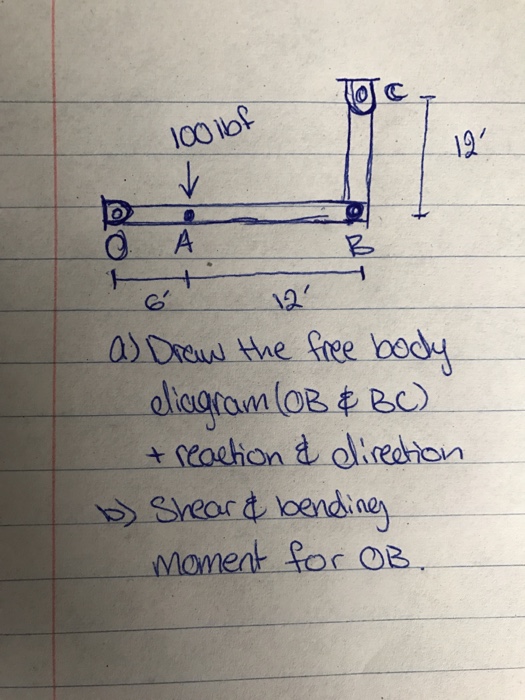 C
100 lbf
12'
O
A
B
6'
12'
a) Draw the free body
diagram (OB & BC)
+ reaction & direction
b) Shear & bending
moment for OB.